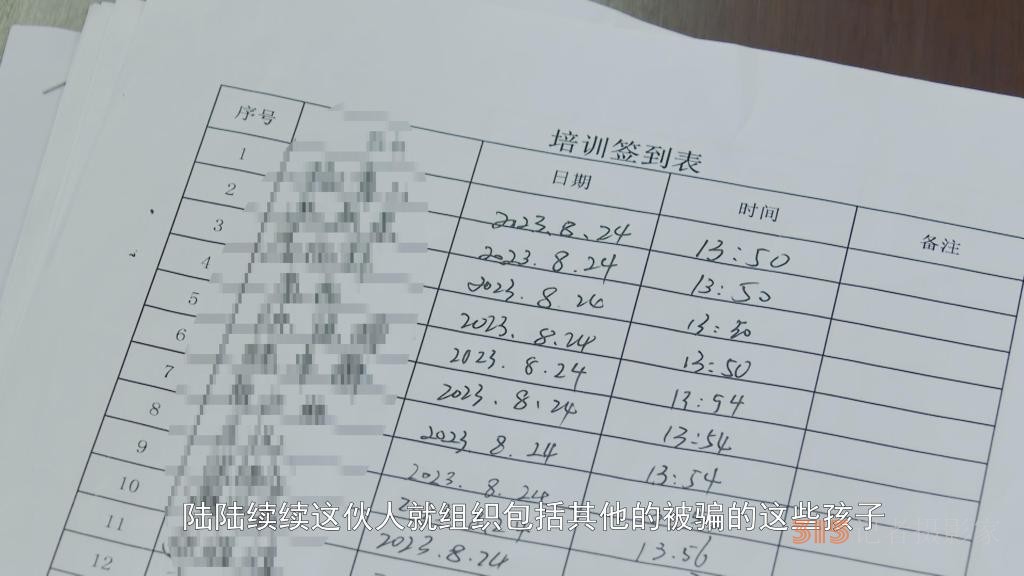 培训签到表
序号 日期 时间 备注
1 2023.8.24 13:50
2 2023.8.24 13:50
3 2023.8.24 13:50
4 2023.8.24 13:50
5 2023.8.24 13:54
6 2023.8.24 13:54
7 2023.8.24 13:54
8 2023.8.24
9
10 2023.8.24 13.56
11
12
陆陆续续这伙人就组织包括其他的被骗的这些孩子
315记者摄影家